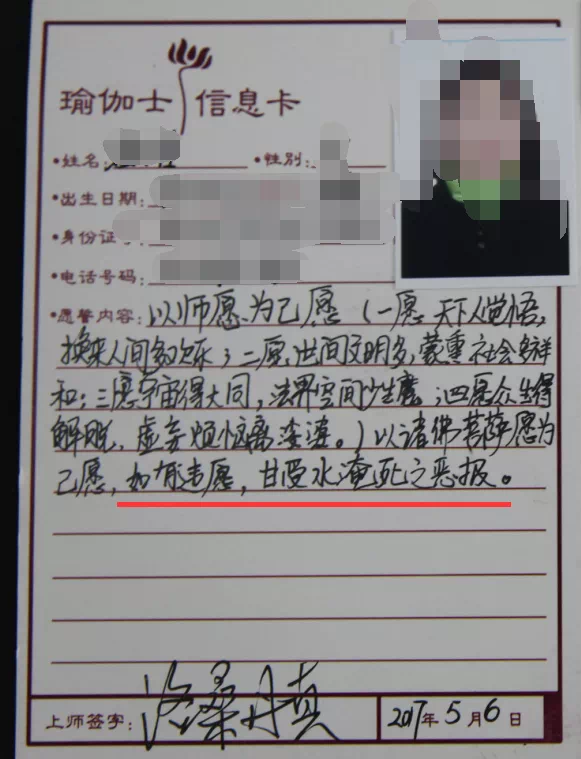 瑜伽士 信息卡
•姓名: •性别:
•出生日期:
•身份证
•电话号码:
•愿誓内容: 以师愿为己愿（一愿天下人觉悟，
换来人间多欢乐；二愿世间文明多，蒙熏社会多祥
和；三愿宇宙得大同，法界空间少生魔；四愿众生得
解脱，虚妄烦恼离婆娑。）以诸佛菩萨愿为
己愿，如有违愿，甘受水淹死之恶报。
上师签字: 洛桑丹真 2017年5月6日